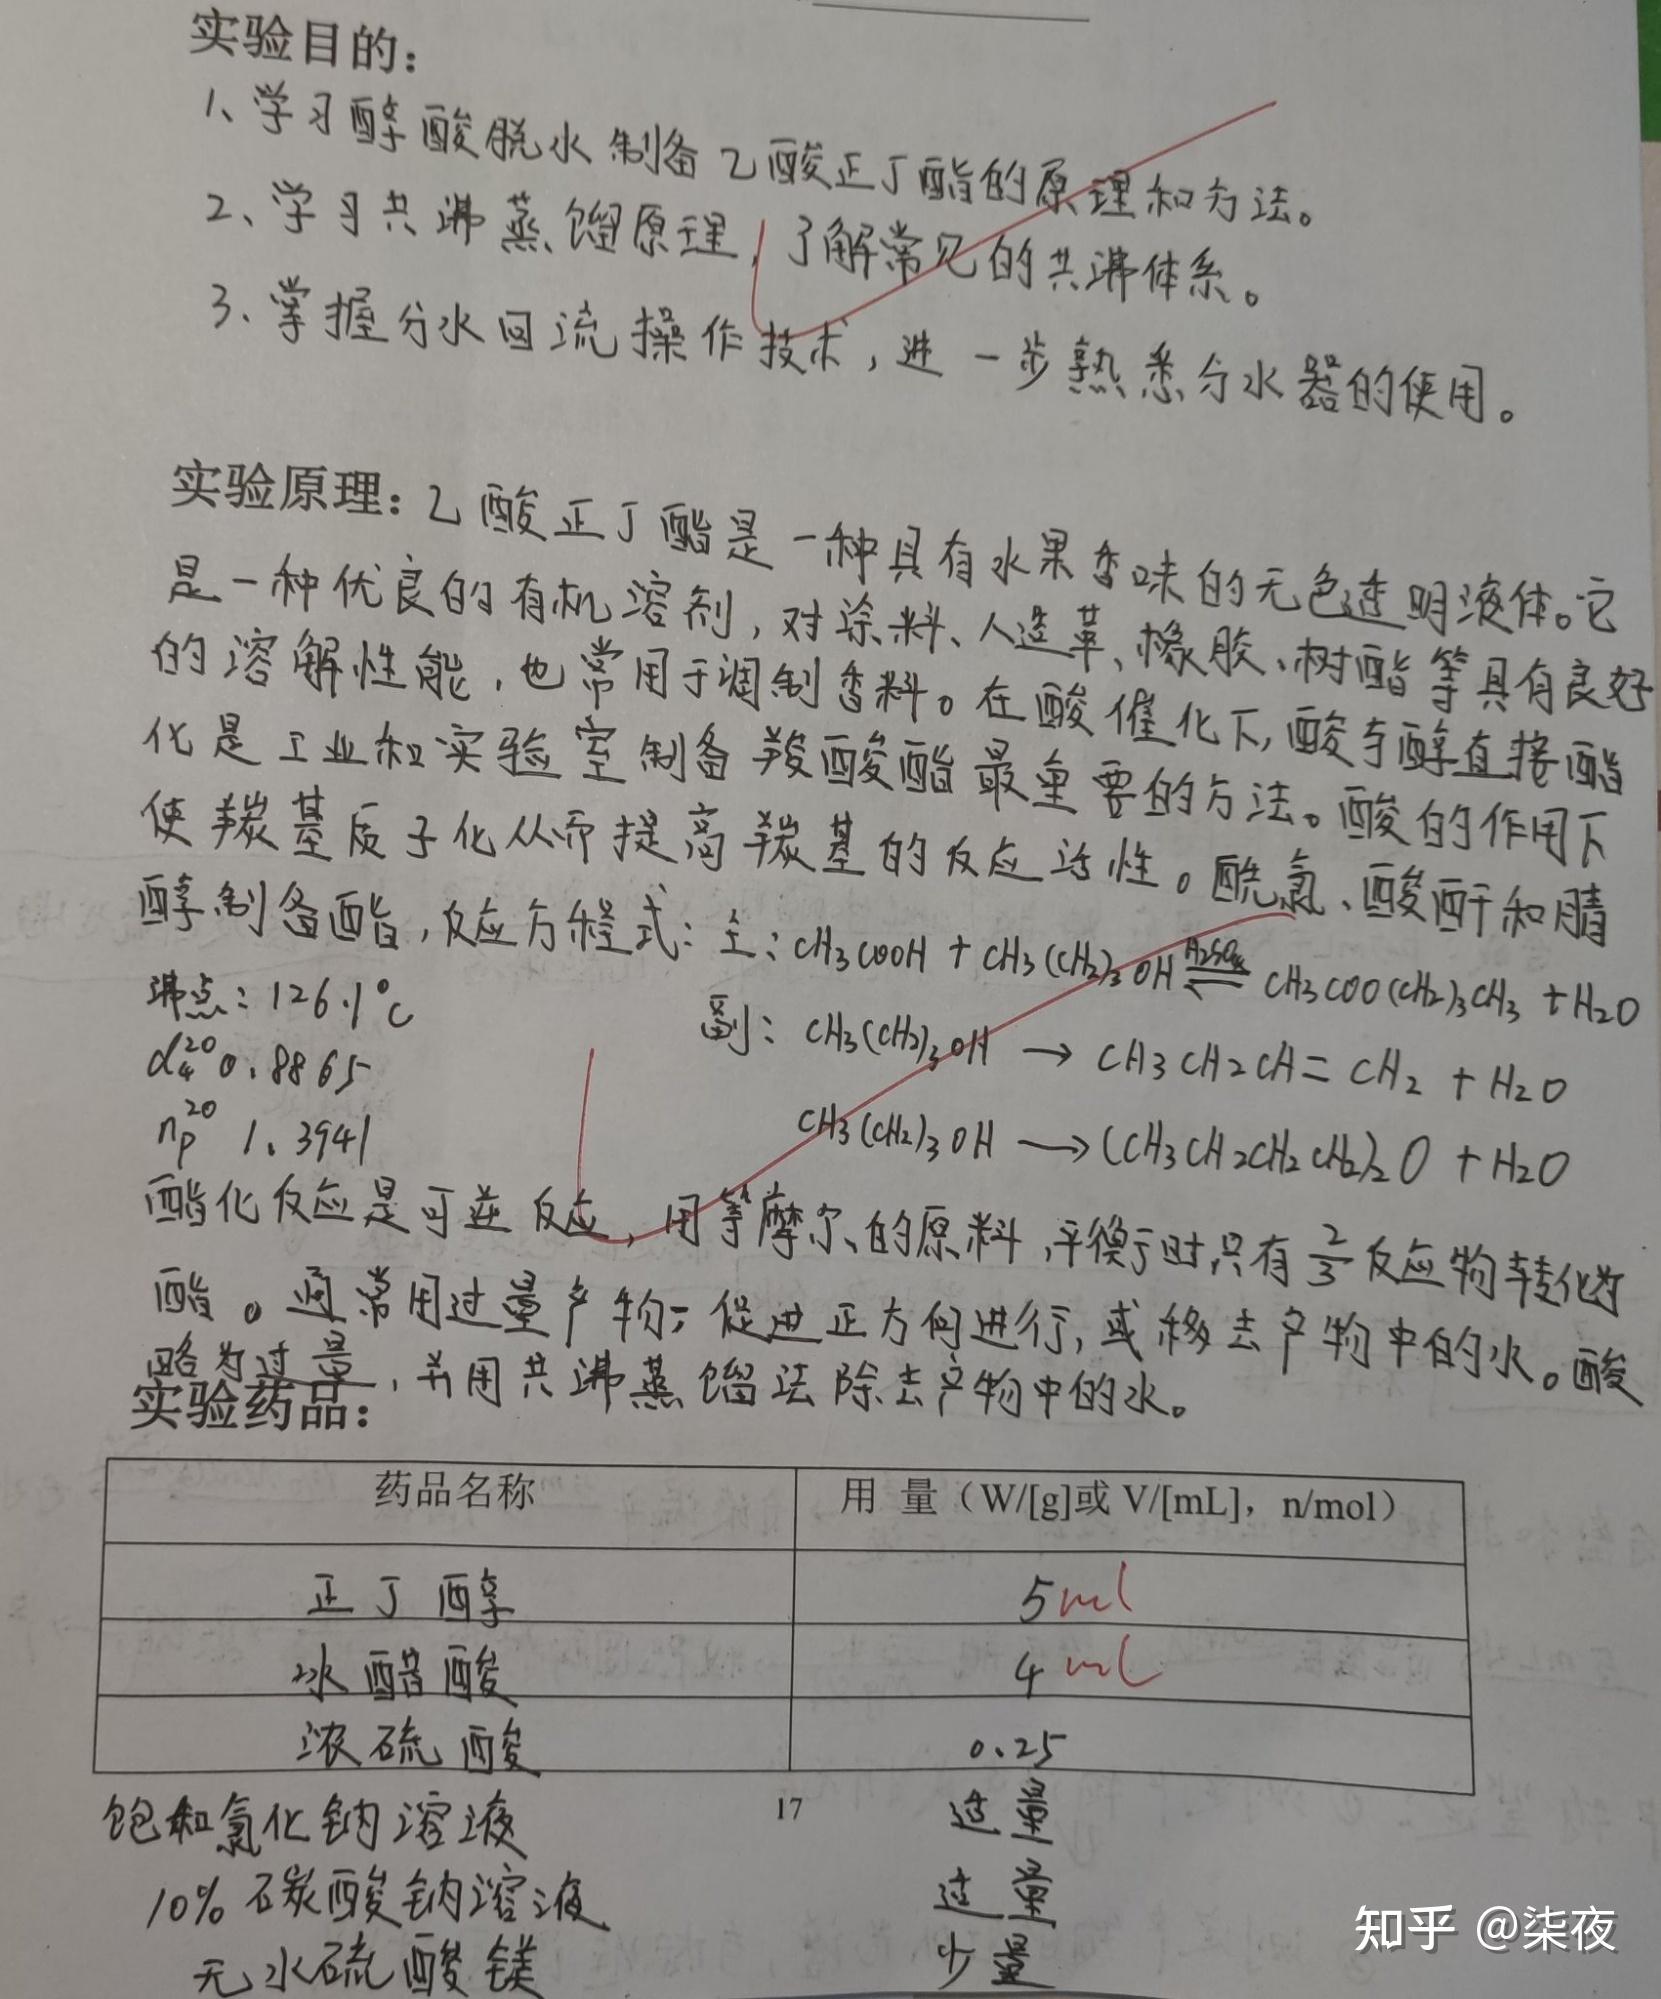 实验目的：
1、学习醇酸脱水制备乙酸正丁酯的原理和方法。
2、学习共沸蒸馏原理，了解常见的共沸体系。
3、掌握分水回流操作技术，进一步熟悉分水器的使用。
实验原理：乙酸正丁酯是一种具有水果香味的无色透明液体。它
是一种优良的有机溶剂，对涂料、人造革、橡胶、树酯等具有良好
的溶解性能，也常用于调制香料。在酸催化下，酸与醇直接酯
化是工业和实验室制备羧酸酯最重要的方法。酸的作用下
使羰基质子化从而提高羰基的反应活性。酰氯、酸酐和腈
醇制备酯，反应方程式：主：CH3COOH + CH3(CH2)3OH ⇌H2SO4 CH3COO(CH2)3CH3 + H2O
沸点：126.1℃
副：CH3(CH2)3OH → CH3CH2CH=CH2 + H2O
d₄²⁰ 0.8865
CH3(CH2)3OH → (CH3CH2CH2CH2)2O + H2O
nD²⁰ 1.3941
酯化反应是可逆反应，用等摩尔的原料，平衡时只有2/3反应物转化为
酯。通常用过量产物，促进正方向进行，或移去产物中的水。酸
略为过量，并用共沸蒸馏法除去产物中的水。
实验药品：
药品名称 用 量（W/[g]或 V/[mL]，n/mol）
正丁醇 5ml
冰醋酸 4ml
浓硫酸 0.25
17
饱和氯化钠溶液 过量
10%碳酸钠溶液 过量
无水硫酸镁 少量
知乎 @柒夜